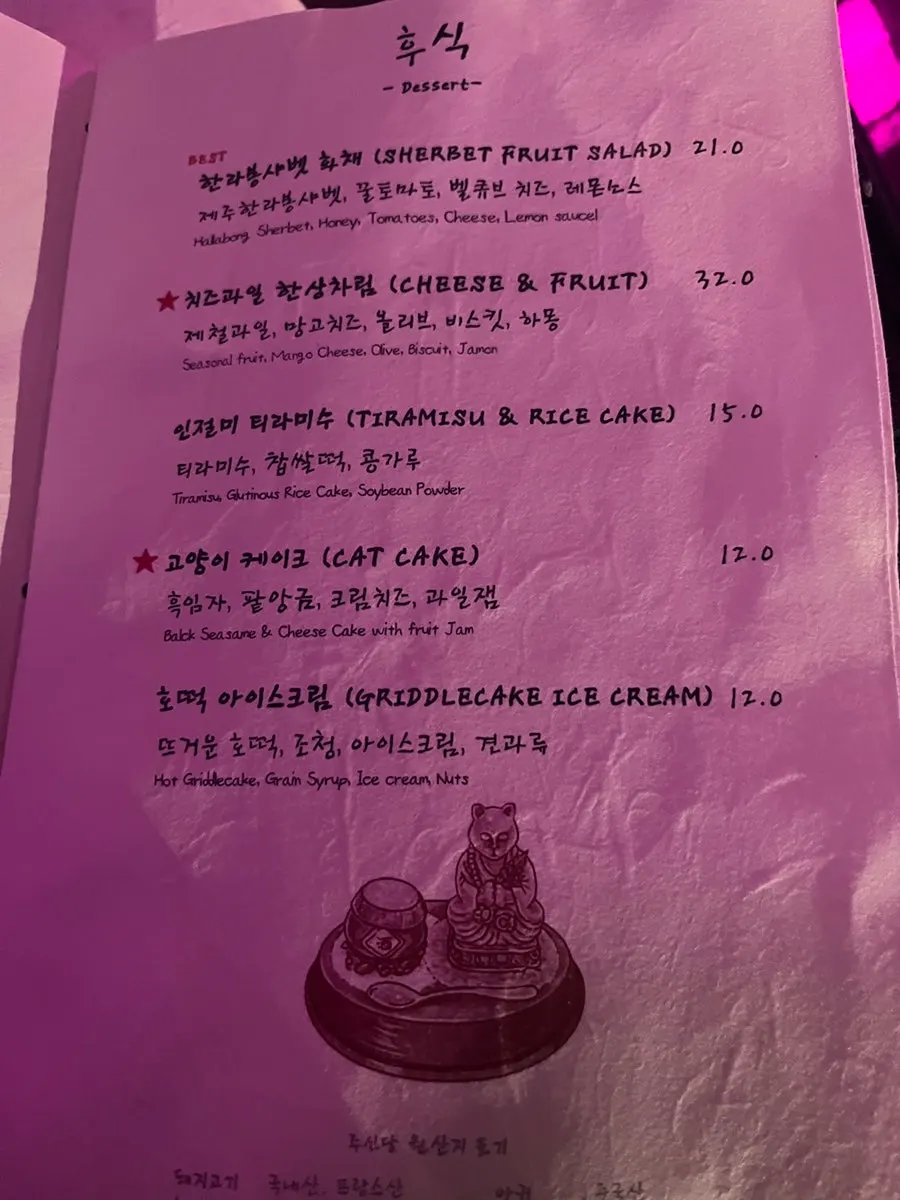 후식
- Dessert -
BEST
한라봉샤벳 화채 (SHERBET FRUIT SALAD) 21.0
제주한라봉샤벳, 꿀토마토, 벨큐브 치즈, 레몬소스
Hallabong Sherbet, Honey, Tomatoes, Cheese, Lemon saucel
★ 치즈과일 한상차림 (CHEESE & FRUIT) 32.0
제철과일, 망고치즈, 올리브, 비스킷, 하몽
Seasonal fruit, Mango Cheese, Olive, Biscuit, Jamon
인절미 티라미수 (TIRAMISU & RICE CAKE) 15.0
티라미수, 찹쌀떡, 콩가루
Tiramisu, Glutinous Rice Cake, Soybean Powder
★ 고양이 케이크 (CAT CAKE) 12.0
흑임자, 팥앙금, 크림치즈, 과일잼
Balck Seasame & Cheese Cake with fruit Jam
호떡 아이스크림 (GRIDDLECAKE ICE CREAM) 12.0
뜨거운 호떡, 조청, 아이스크림, 견과류
Hot Griddlecake, Grain Syrup, Ice cream, Nuts
酒
주신당 원산지 표기
돼지고기 국내산, 프랑스산 아귀 중국산